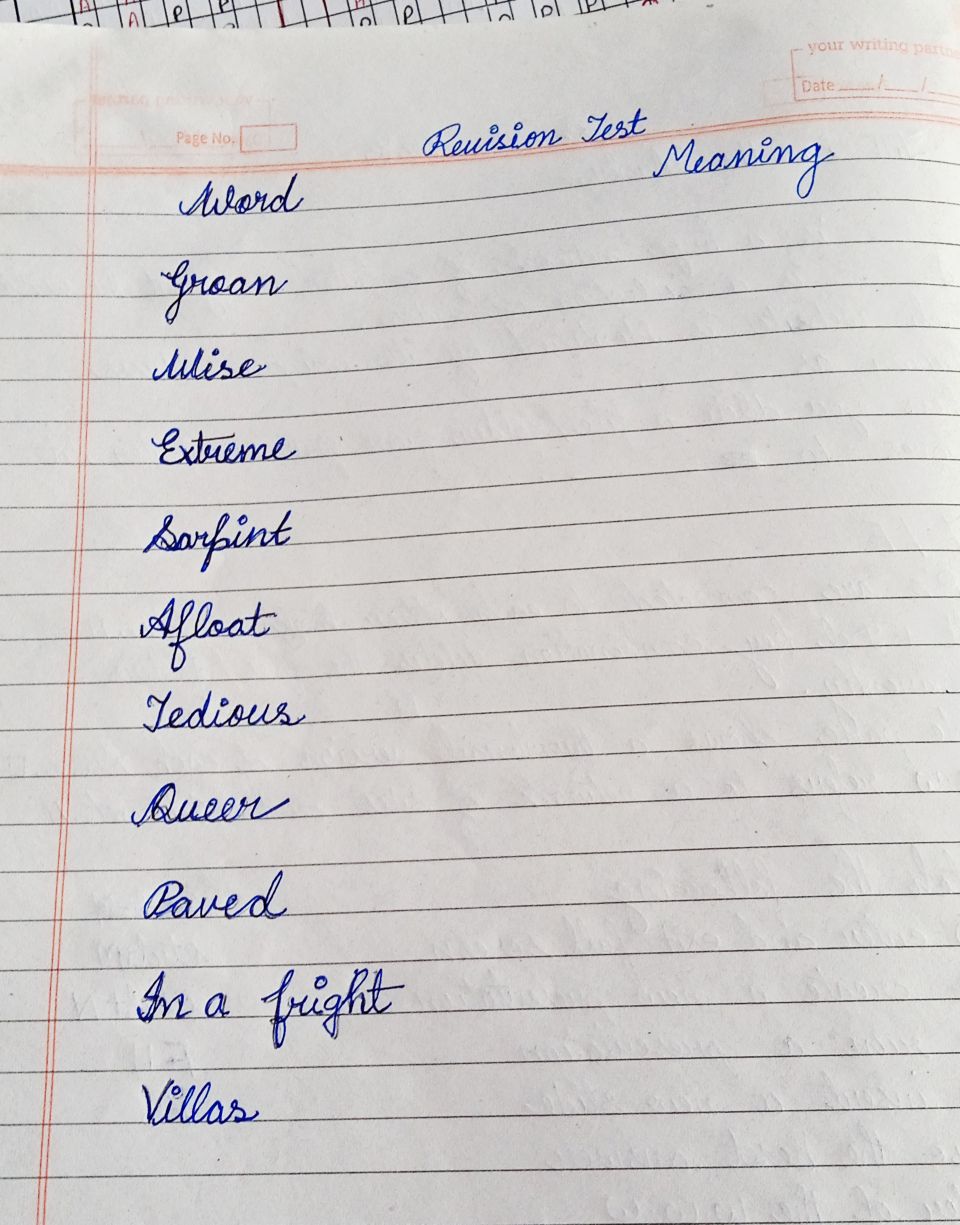 your writing
Date
Page No.
Revision Test
Word Meaning
Groan
Wise
Extreme
Sarpint
Afloat
Tedious
Queer
Paved
In a fright
Villas